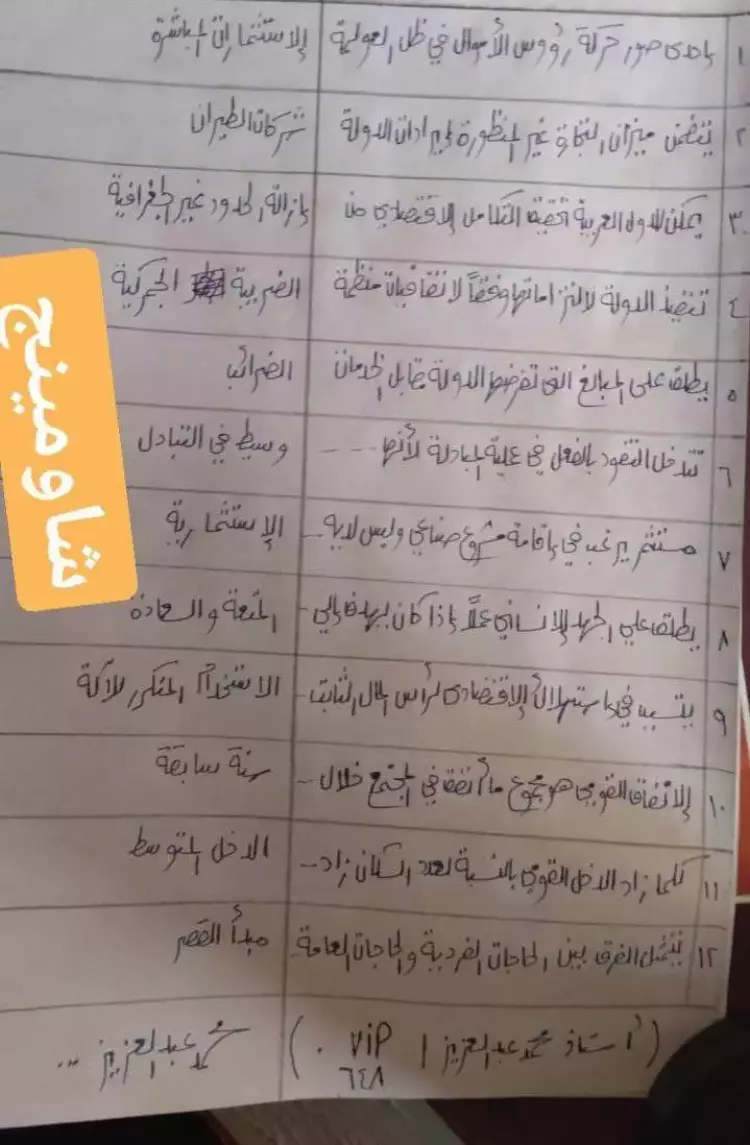 ١ إحدى صور حركة رؤوس الأموال في ظل العولمة الإستثمارات المباشرة
٢ يتضمن ميزان التجارة غير المنظورة إيرادات الدولة شركات الطيران
٣ يمكن للدول العربية تحقيق التكامل الإقتصادي من إزالة الحدود غير الجغرافية
٤ تنفيذ الدولة لالتزاماتها وفقاً لاتفاقيات منظمة الضريبة الجمركية
٥ يطلق على المبالغ التي تفرضها الدولة مقابل الخدمات الضرائب
٦ تتدخل النقود بالفعل في عملية المبادلة لأنها .... وسيط في التبادل
٧ مستثمر يرغب في إقامة مشروع صناعي وليس لديه... الإستثمارية
٨ يطلق على الجهد الإنساني عملاً إذا كان يهدف إلى المتعة والسعادة
٩ يتسبب في إستهلاك الإقتصادى لرأس المال الثابت الاستخدام المتكرر للآلة
١٠ الإنفاق القومي هو مجموع ما أنفقه في المجتمع خلال... سنة سابقة
١١ كلما زاد الدخل القومي بالنسبة لعدد السكان زاد... الدخل المتوسط
١٢ يتمثل الفرق بين الحاجات الفردية والحاجات العامة مبدأ القصر
(أستاذ محمد عبدالعزيز / ViP ٦٤٨) محمد عبدالعزيز ...
شاومينج